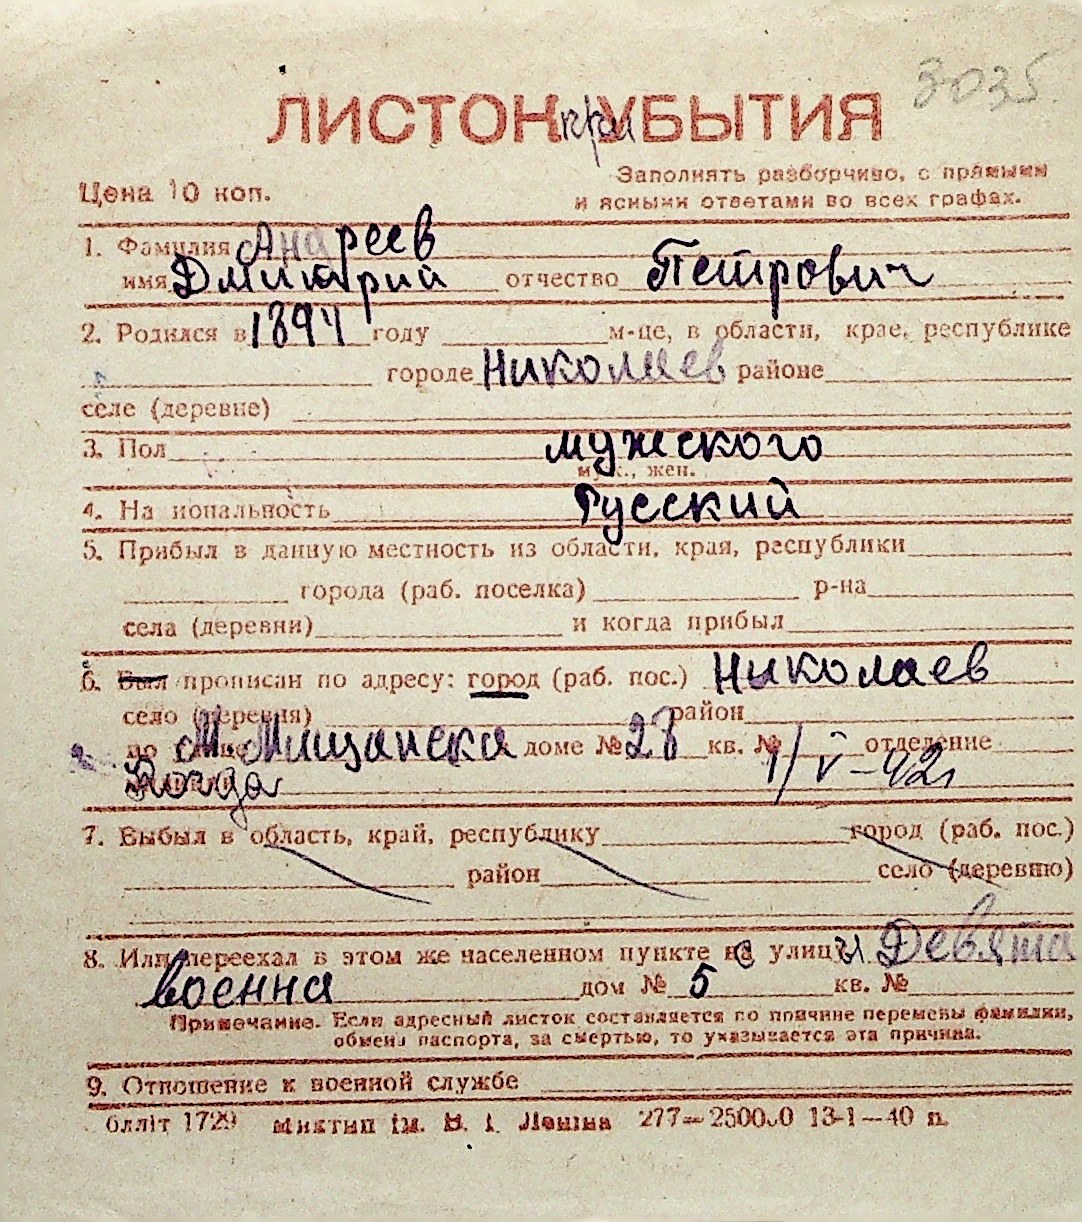 3035
ЛИСТОК при УБЫТИЯ
Цена 10 коп.
Заполнять разборчиво, с прямыми
и ясными ответами во всех графах.
1. Фамилия Андреев
имя Дмитрий отчество Петрович
2. Родился в 1894 году м-це, в области, крае, республике
городе Николаев районе
селе (деревне)
3. Пол мужского
муж., жен.
4. Национальность Русский
5. Прибыл в данную местность из области, края, республики
города (раб. поселка) р-на
села (деревни) и когда прибыл
6. Был прописан по адресу: город (раб. пос.) Николаев
село (деревня) район
по М. Мищанска доме № 28 кв. № отделение
Когда 1/V-42
7. Выбыл в область, край, республику город (раб. пос.)
район село (деревню)
8. Или переехал в этом же населенном пункте с улицы Девята
Военна дом № 5 кв. №
Примечание. Если адресный листок составляется по причине перемены фамилии,
обмена паспорта, за смертью, то указывается эта причина.
9. Отношение к военной службе
блліт 1729 ім. В. І. Леніна 277—250000 13-1—40 п.